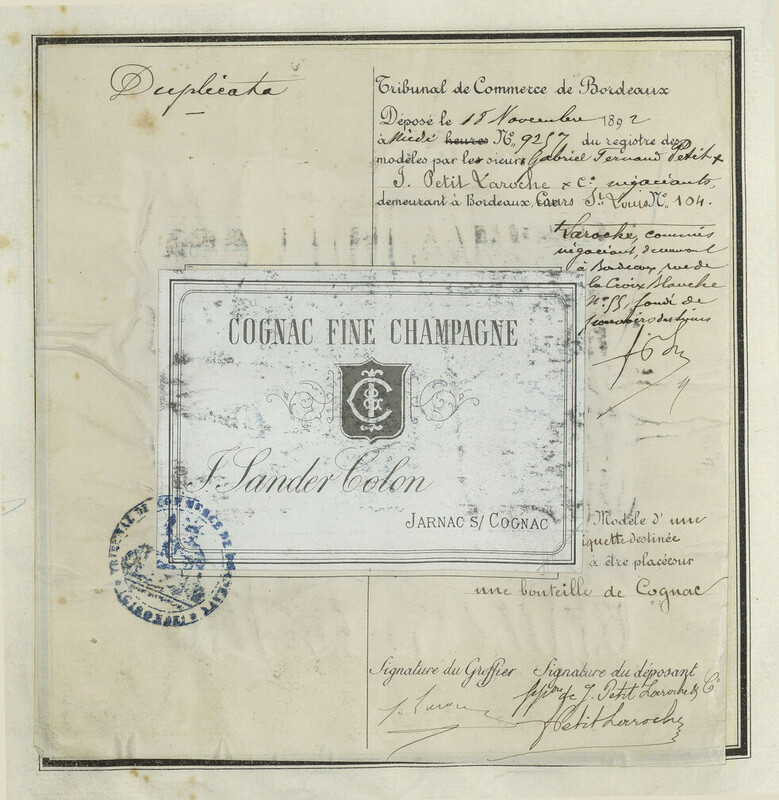 Duplicata
Tribunal de Commerce de Bordeaux
Déposé le 18 Novembre 1892
à Midi heures N° 9257 du registre des
modèles par les sieurs Gabriel Fernand Petit &
J. Petit Laroche & Cie, négociants,
demeurant à Bordeaux, Cours St Louis N° 104.
Laroche, commis
négociant, demeurant
à Bordeaux, rue de
la Croix Blanche
N° 55, fondé de
pouvoirs
COGNAC FINE CHAMPAGNE
J. Sander Colon
JARNAC S/ COGNAC
TRIBUNAL DE COMMERCE DE BORDEAUX
Modèle d'une
iquette destinée
à être placée sur
une bouteille de Cognac
Signature du Greffier Signature du déposant
de J. Petit Laroche & Cie
Petit Laroche